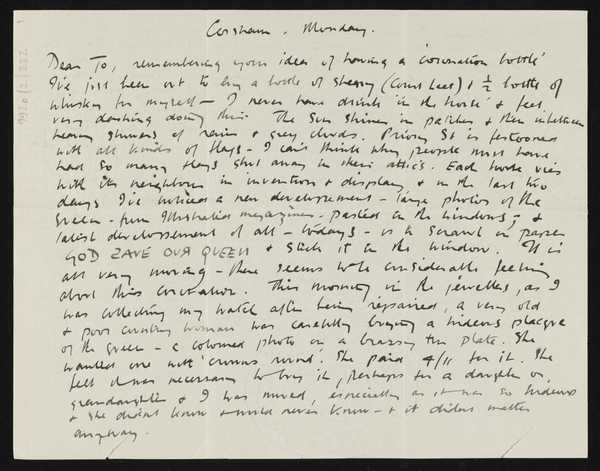 Corsham. Monday.
Dear To, remembering your idea of having a 'coronation bottle'
I've just been out to buy a bottle of sherry ( ) & ½ bottle of
whiskey for myself - I never have drinks in the house & feel
very dashing doing this. The Sun shines in patches & then inbetween
heavy showers of rain & grey clouds. Priory St is festooned
with all kinds of flags - I can't think why people must have
had so many flags shut away in their attics. Each house vies
with its neighbour in invention & display, & in the last two
days I've noticed a new development - large photos of the
Queen - from Illustrated magazines - pasted in the windows, &
latest development of all - today's - is to scrawl on paper
GOD ZAVE OUR QUEEN & stick it in the window. It is
all very moving - there seems to be considerable feeling
about this coronation. This morning in the jewellers, as I
was collecting my watch after being repaired, a very old
& poor country woman was carefully buying a hideous plaque
of the Queen - a coloured photo on a brassy tin plate. She
wanted one with 'crowns round'. She paid 4/11 for it. She
felt it was necessary to buy it, perhaps for a daughter or
grandaughter & I was moved, especially as it was so hideous
& she didn't know & would never know - & it didn't matter
anyway.
9920/2/222